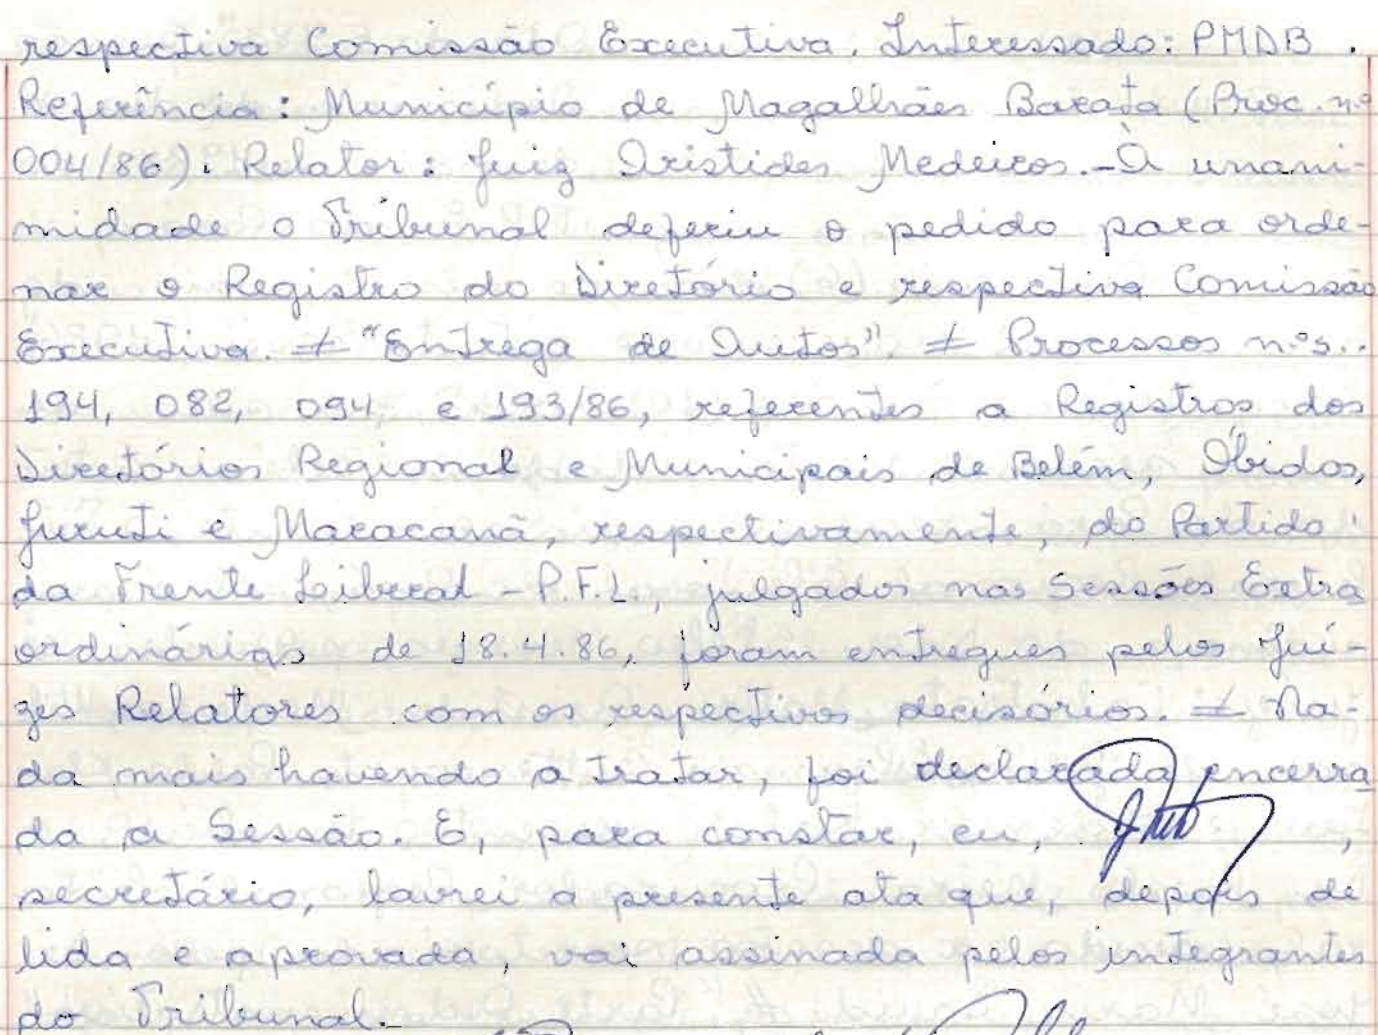 respectiva Comissão Executiva. Interessado: PMDB.
Referência: Município de Magalhães Barata (Proc. nº
004/86). Relator: Juiz Aristides Medeiros. - À unani-
midade o Tribunal deferiu o pedido para orde-
nar o Registro do Diretório e respectiva Comissão
Executiva. ≠ "Entrega de Autos" ≠ Processos nºs..
194, 082, 094 e 193/86, referentes a Registros dos
Diretórios Regional e Municipais de Belém, Óbidos,
Juruti e Maracanã, respectivamente, do Partido
da Frente Liberal - P.F.L., julgados nas Sessões Extra
ordinárias de 18.4.86, foram entregues pelos Juí-
zes Relatores com os respectivos decisórios. ≠ Na-
da mais havendo a tratar, foi declarada encerra
da a Sessão. E, para constar, eu, ,
secretário, lavrei a presente ata que, depois de
lida e aprovada, vai assinada pelos integrantes
do Tribunal.-